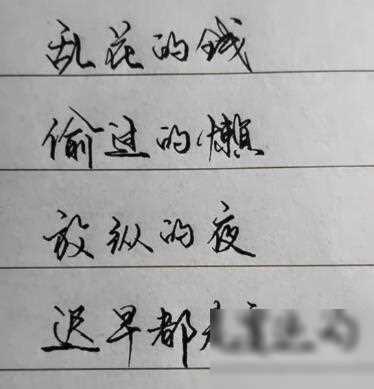 乱花的钱
偷过的懒
放纵的夜
迟早都